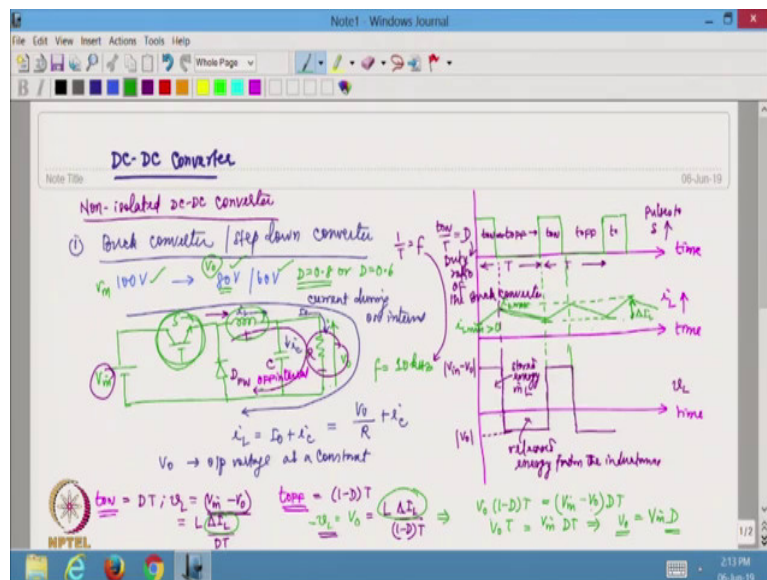 Note1 - Windows Journal
File Edit View Insert Actions Tools Help
Whole Page
B I
DC-DC Converter
Note Title
06-Jun-19
Non-isolated DC-DC converter
① Buck converter / step down converter
1/T = f
Vin 100V → 80V / 60V D=0.8 or D=0.6
V0
current during
on interv
S
T
iL
I0
Vin
DFW
off interval
C
ic
R
V0
f = 10 kHz
iL = I0 + ic = V0/R + ic
V0 → o/p voltage at a constant
ton/T = D
Duty
ratio
of
the Buck converter
ton toff ton toff to
Pulses to
S ↑
← T → ← T →
time
iLmin > 0
iL ↑
ΔIL
time
|Vin-V0|
stored
energy
in L
vL
time
|V0|
released
energy from the inductance
ton = DT; vL = (Vin - V0)
= L ΔIL/DT
toff = (1-D)T
-vL = V0 = L ΔIL/(1-D)T ⇒
V0 (1-D)T = (Vin - V0)DT
V0 T = Vin DT ⇒ V0 = Vin D
NPTEL
1/2
2:13 PM
06-Jun-19